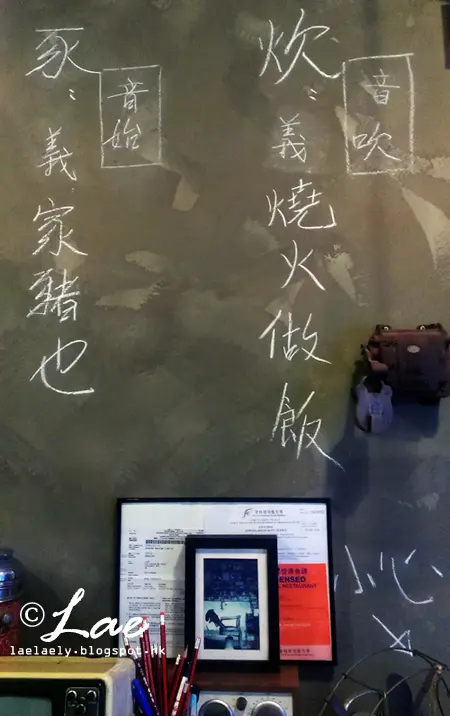 炊：義燒火做飯
音吹
豕：義家豬也
音始
小心
ENSED
RESTAURANT
© Lae
laelaely.blogspot.hk